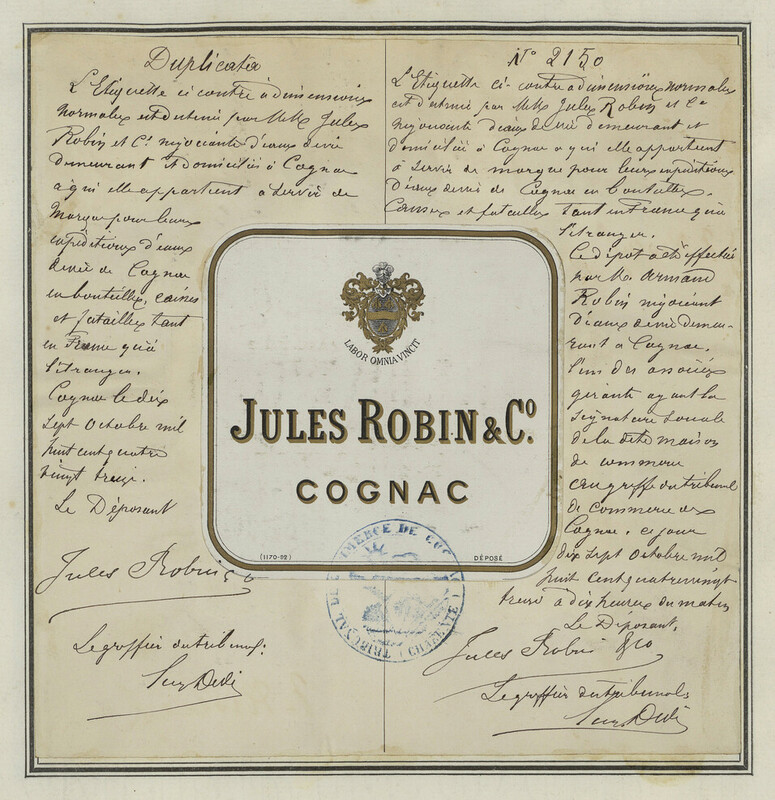 Duplicata
L'Etiquette ci contre à dimensions
normales est détenue par MM. Jules
Robin et Cie négociants d'eaux de vie
demeurant et domiciliés à Cognac
à qui elle appartient à servir de
marque pour leurs
expéditions d'eaux
de vie de Cognac
en bouteilles, caisses
et futailles tant
en France qu'à
l'étranger.
Cognac le dix
sept Octobre mil
huit cent quatre
vingt treize.
Le Déposant
Jules Robin & Co
Le greffier du tribunal:
No 2150
L'Etiquette ci-contre à dimensions normales
est détenue par MM. Jules Robin et Cie
négociants d'eaux de vie demeurant et
domiciliés à Cognac à qui elle appartient
à servir de marque pour leurs expéditions
d'eaux de vie de Cognac en bouteilles,
Caisses et futailles tant en France qu'à
l'étranger.
Ce dépôt a été effectué
par M. Armand
Robin négociant
d'eaux de vie demeu-
rant à Cognac,
l'un des associés
gérants ayant la
signature sociale
de la dite maison
de commerce
au greffe du tribunal
de Commerce de
Cognac, ce jour
dix sept Octobre mil
huit cent quatre vingt
treize à dix heures du matin
Le Déposant,
Jules Robin & Co
Le greffier du tribunal
LABOR OMNIA VINCIT
JULES ROBIN & Co.
COGNAC
(1170-92) DÉPOSÉ
TRIBUNAL DE COMMERCE DE COGNAC (CHARENTE)